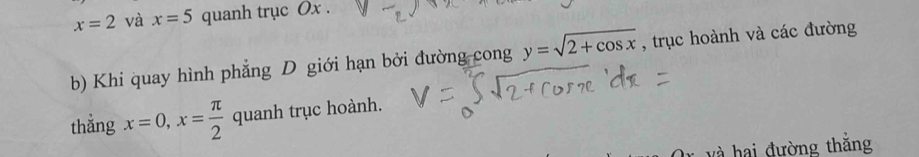 x = 2 và x = 5 quanh trục Ox .
b) Khi quay hình phẳng D giới hạn bởi đường cong y = √(2 + cos x) , trục hoành và các đường
thẳng x = 0, x = π/2 quanh trục hoành.
V = ∫₀ √(2 + cos x) dx =
và hai đường thẳng